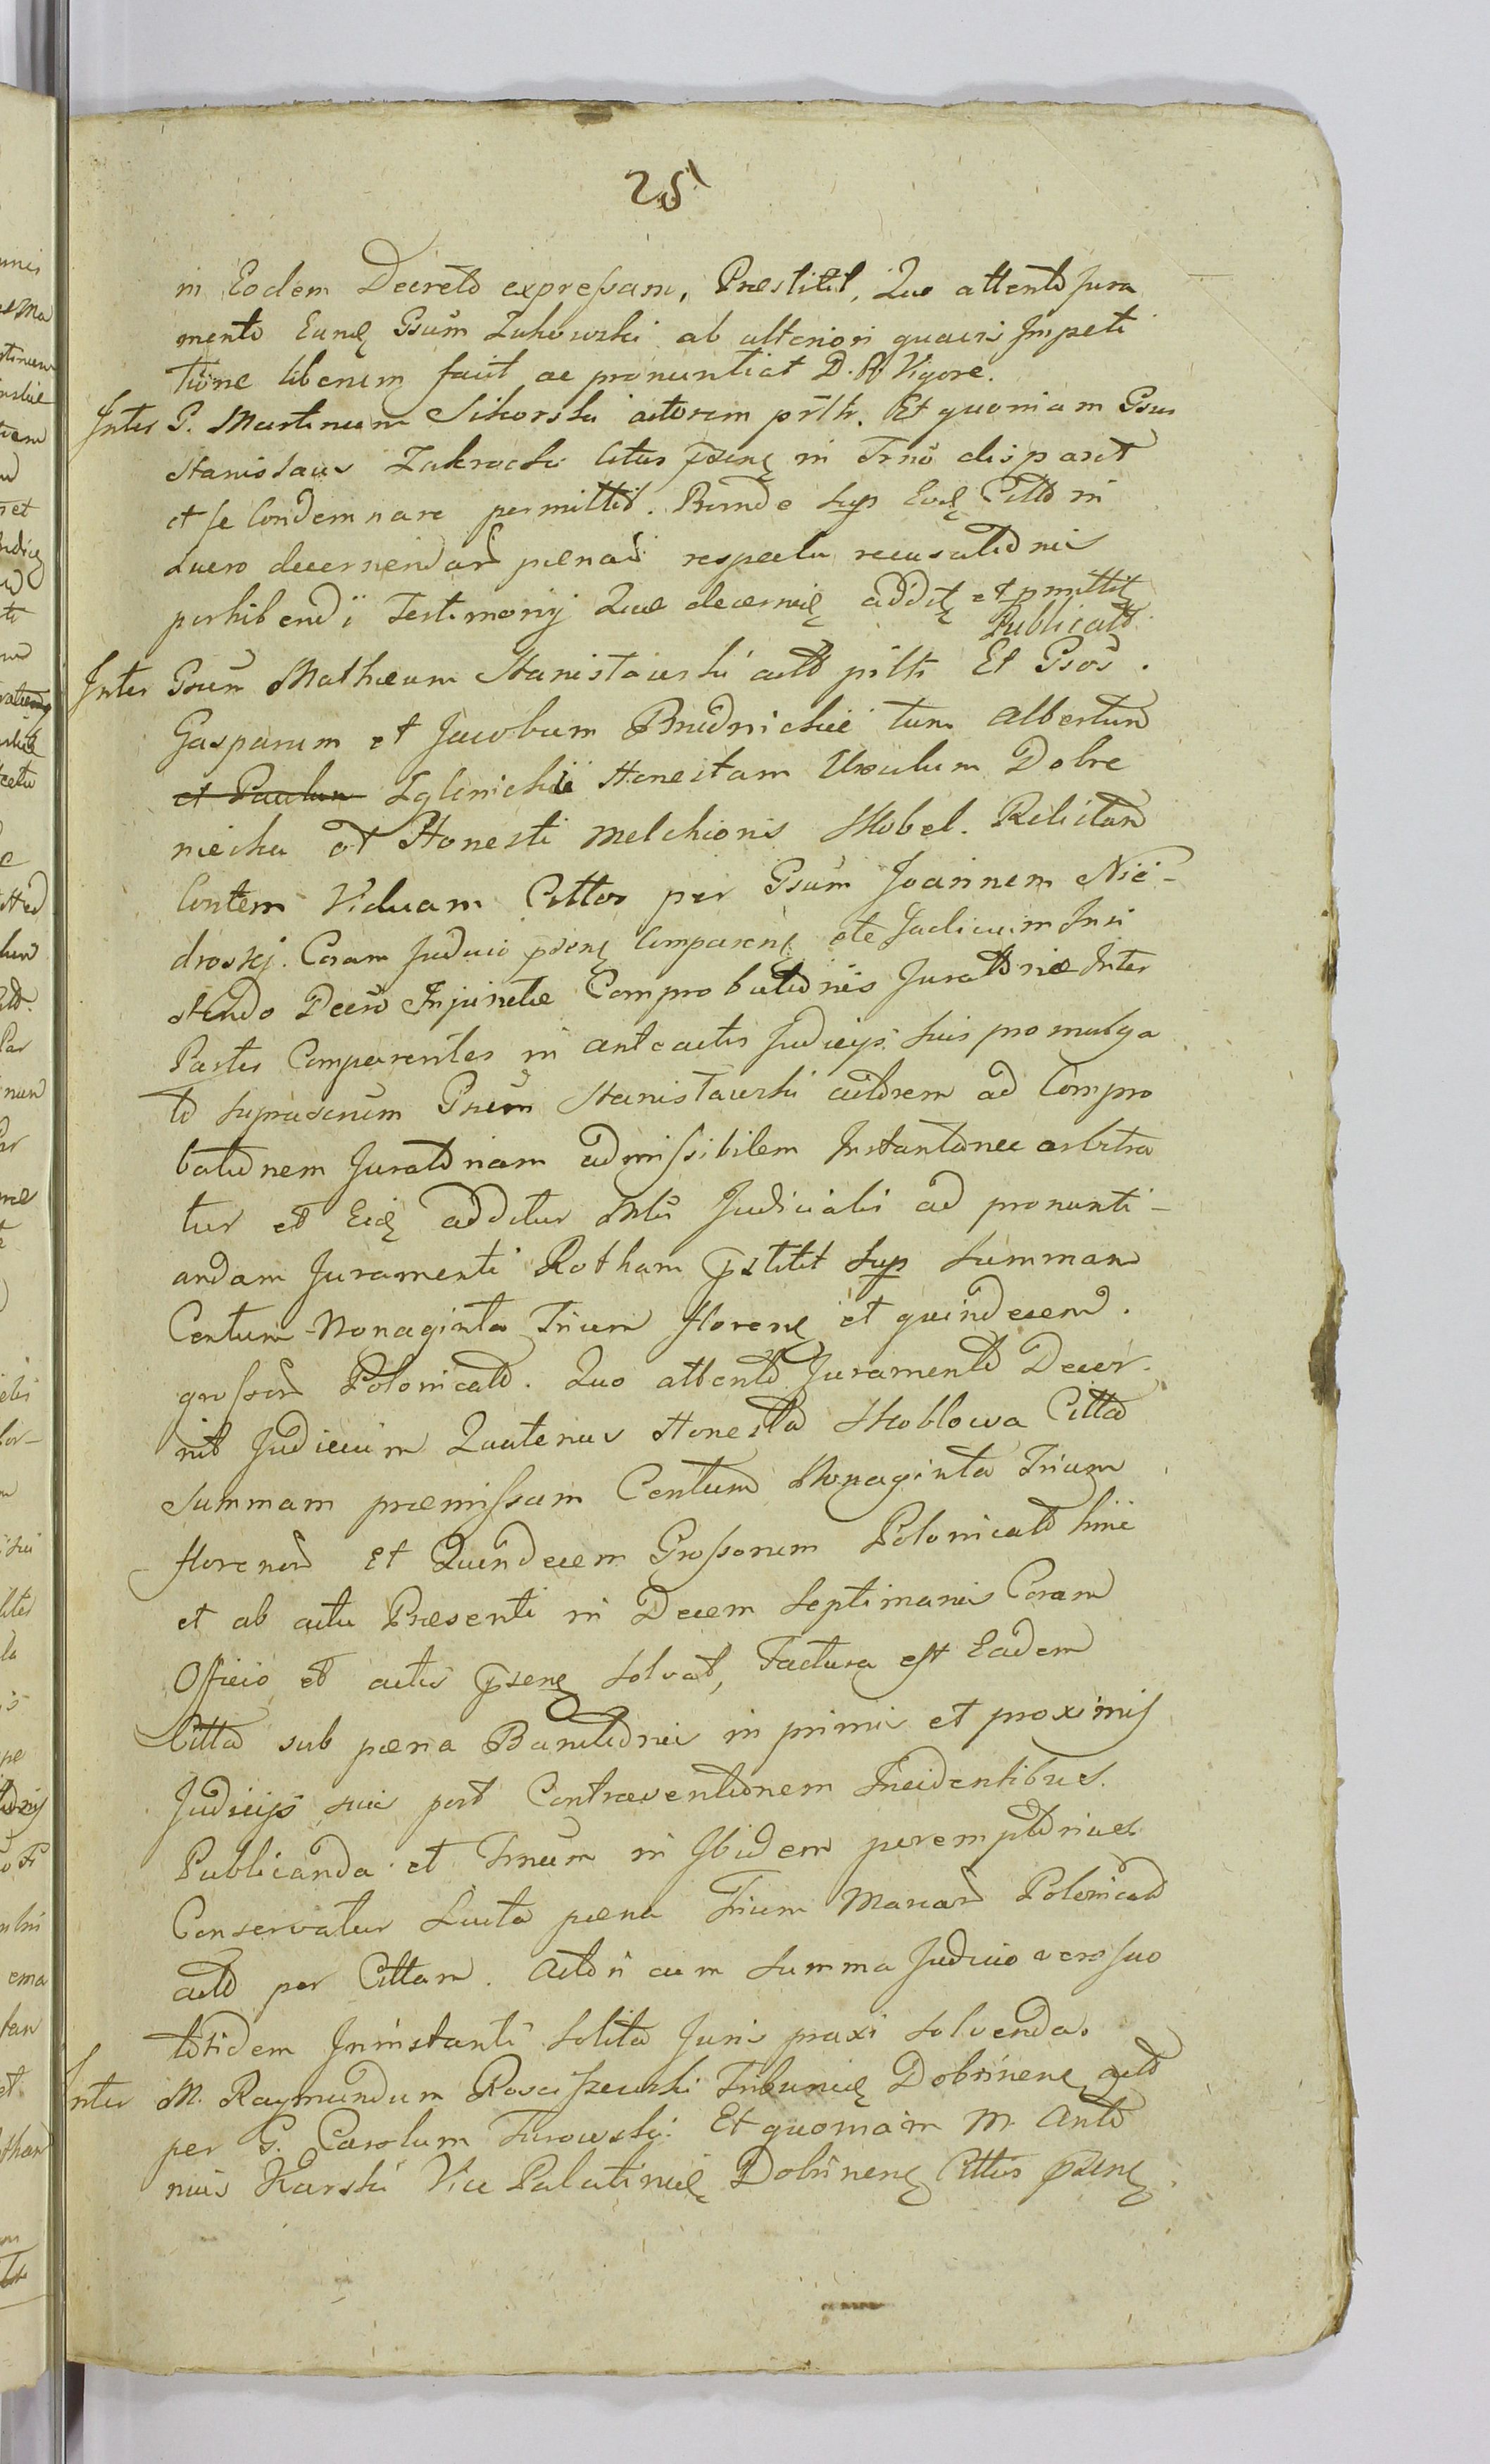 25
in Eodem Decreto expressam, Præstitit, Quo attento Jura
mento Eund Gsum Zukowski ab ulteriori quavis Impeti
tione liberum facit ac pronuntiat D. R. Vigore.
Inter G. Martinum Sikorski actorem psltr. Et quoniam Gsus
Stanislaus Zakrocki Citus psens in Trno disparet
et se Condemnare permittit. Proinde sup Eod Citto in
Lucro decernendar pænar respectu recusationis
perhibendi Testimonij Quæ decernit addit et pmittit
Publicatt.
Inter Gsum Mathæum Stanisławski actt psltr Et Gsos.
Gasparum et Jacobum Brudnickie tum Albertum
et Paulum Zglinickii Honestam Ursulam Dobre
niecka et Honesti Melchioris Skobel. Relictam
Contem Viduam Cittos per Gsum Joannem Nie-
droskj. Coram Judicio psens Comparens ote Judicium Insi
stendo Decto Injunctæ Comprobationis Juratoriæ Inter
Partes Comparentes in anteactis Judicijs suis promulga
to suprascrum Gsum Stanisławski actorem ad Compro
bationem Juratoriam admissibilem Instantanee arbitra
tur et Eid additur Mtri Judicialis ad pronunti-
andam Juramenti Rotham pstitit sup summam
Centum Nonaginta Trium floren et quindecem.
grossor Polonicatt. Quo attento Juramento Decer-
nit Judicium Quatenus Honesta Skoblowa Citta
summam præmissam Centum Nonaginta Trium
florenor Et Quindecem Grossorum Polonicatt hinc
et ab actu Præsenti in Decem septimanis Coram
Officio et actis psens solvat, Factura est Eadem
Citta sub pæna Banitionis in primis et proximis
Judicijs suis post Contraventionem Incidentibus.
Publicanda et Trnum in Ibidem peremptorius
Conservatur Lucta pæna Trium Marcar Polonicatt
actt per Cittam. Actori cum summa Judicio vero suo
totidem Ininstanti solita Juris praxi solvenda.
Inter M. Raymundum Rosciszewski Tribunid Dobrinens actt
per G. Carolum Turowski. Et quoniam M. Anto
nius Karski Vice Palatinid Dobrinens Cittus psens